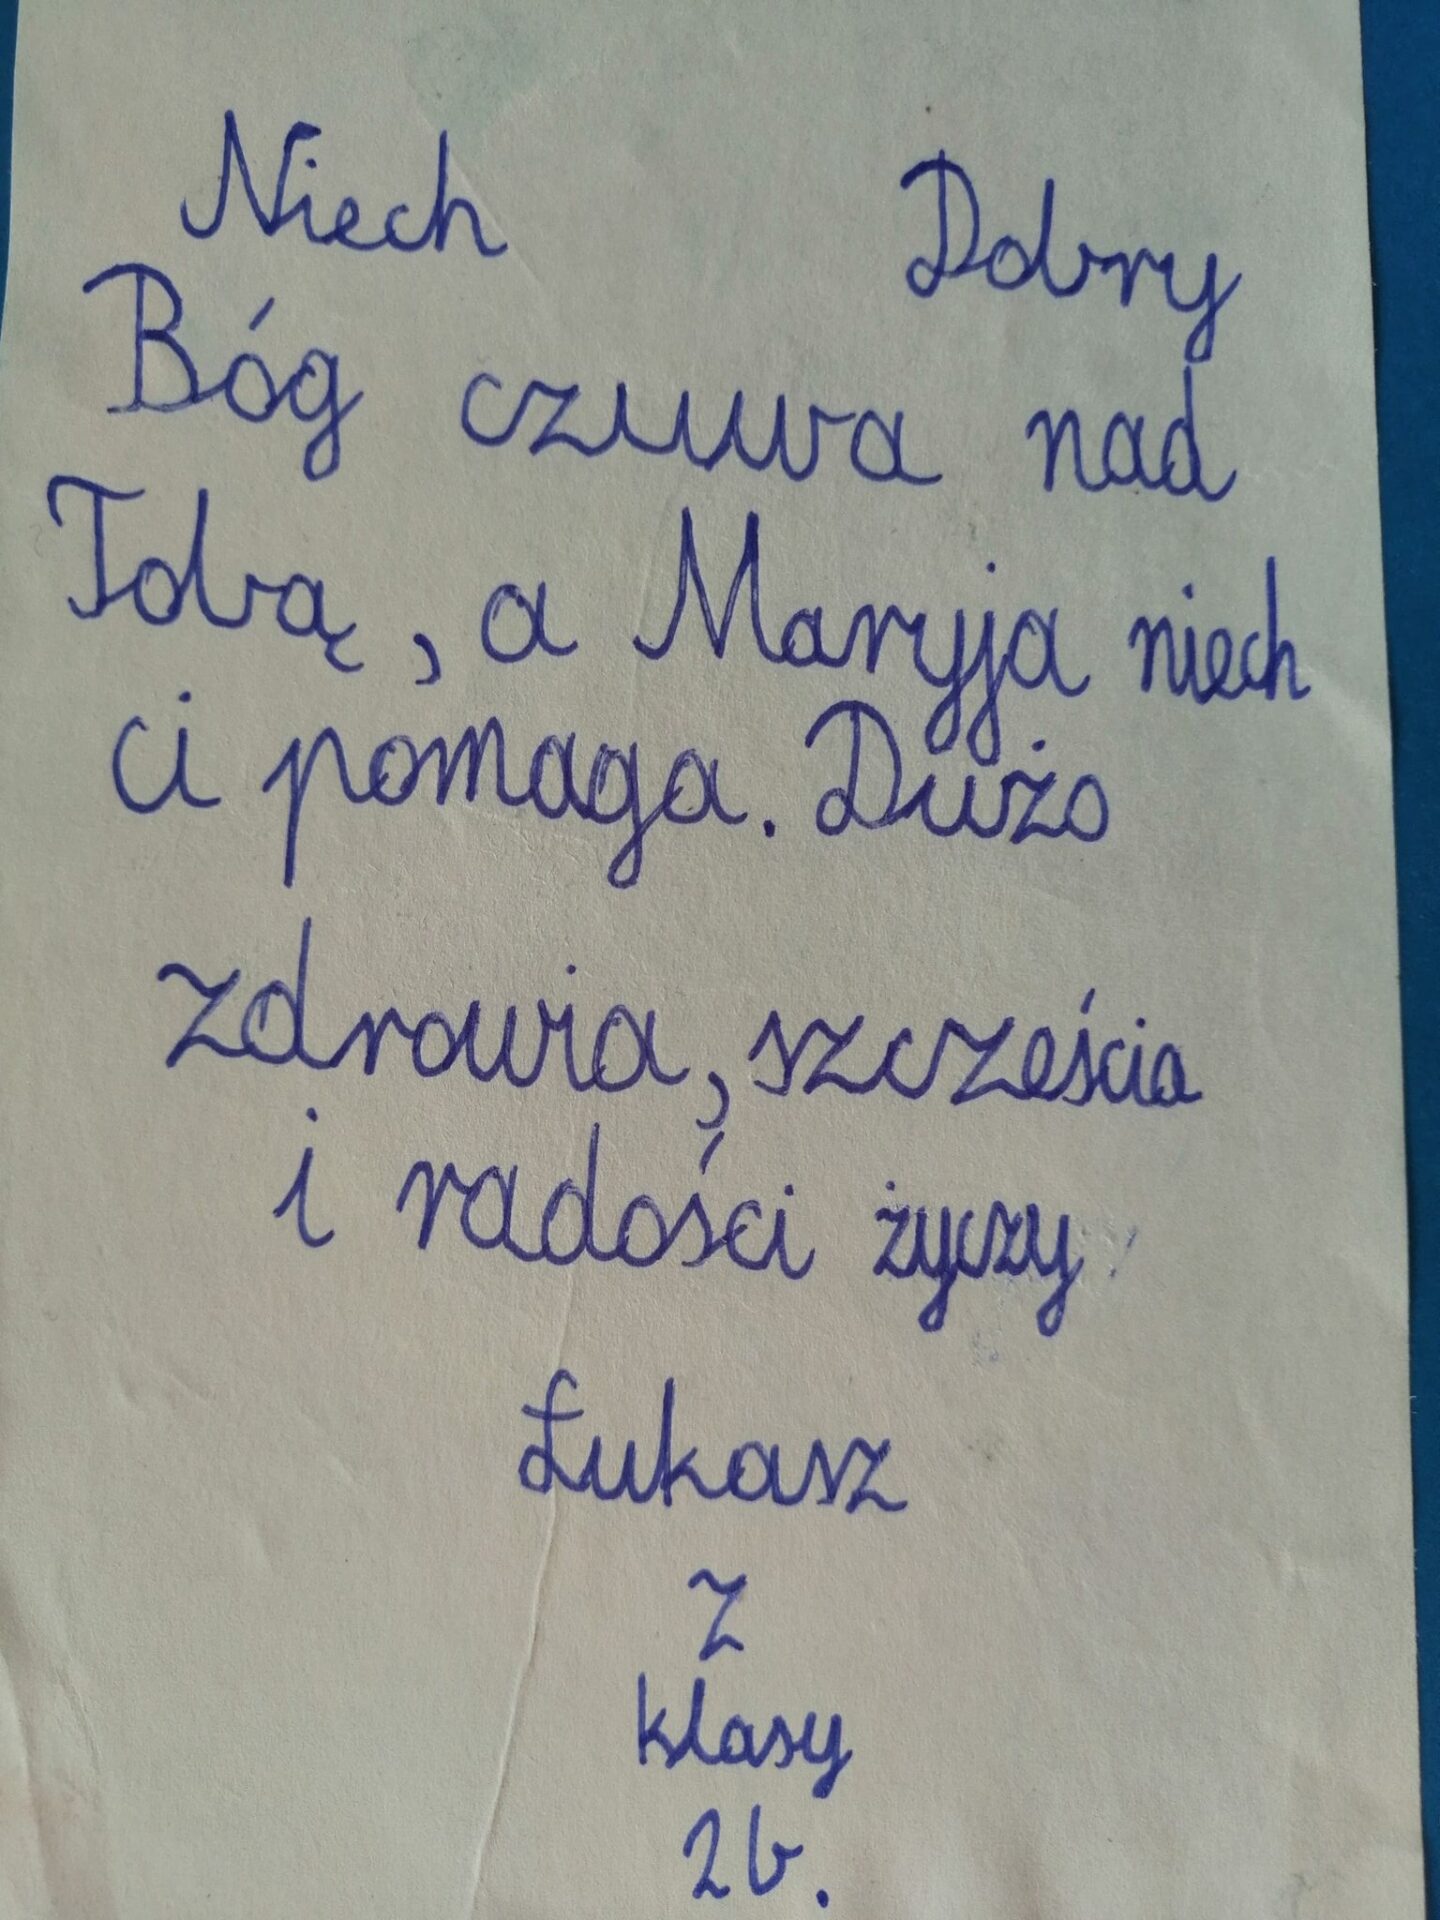 Niech Dobry
Bóg czuwa nad
Tobą, a Maryja niech
ci pomaga. Dużo
zdrowia, szcześcia
i radości życzy
Łukasz
z
klasy
2b.